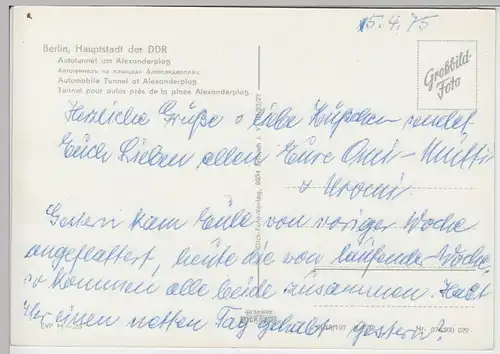 15.4.75
Berlin, Hauptstadt der DDR
Autotunnel am Alexanderplatz
Автотоннель на площади Александерплац
Automobile Tunnel at Alexanderplatz
Tunnel pour autos près de la place Alexanderplatz
Großbild-
Foto
Herzliche Grüße + liebe Küßchen sendet
Euch Lieben allen Eure Omi-Mutti
+ Uromi
Gestern kam Eule von voriger Woche
angeflattert, heute die von laufender Woche,
so kommen alle beide zusammen. Habt
Ihr einen netten Tag gehabt gestern?
EVP M